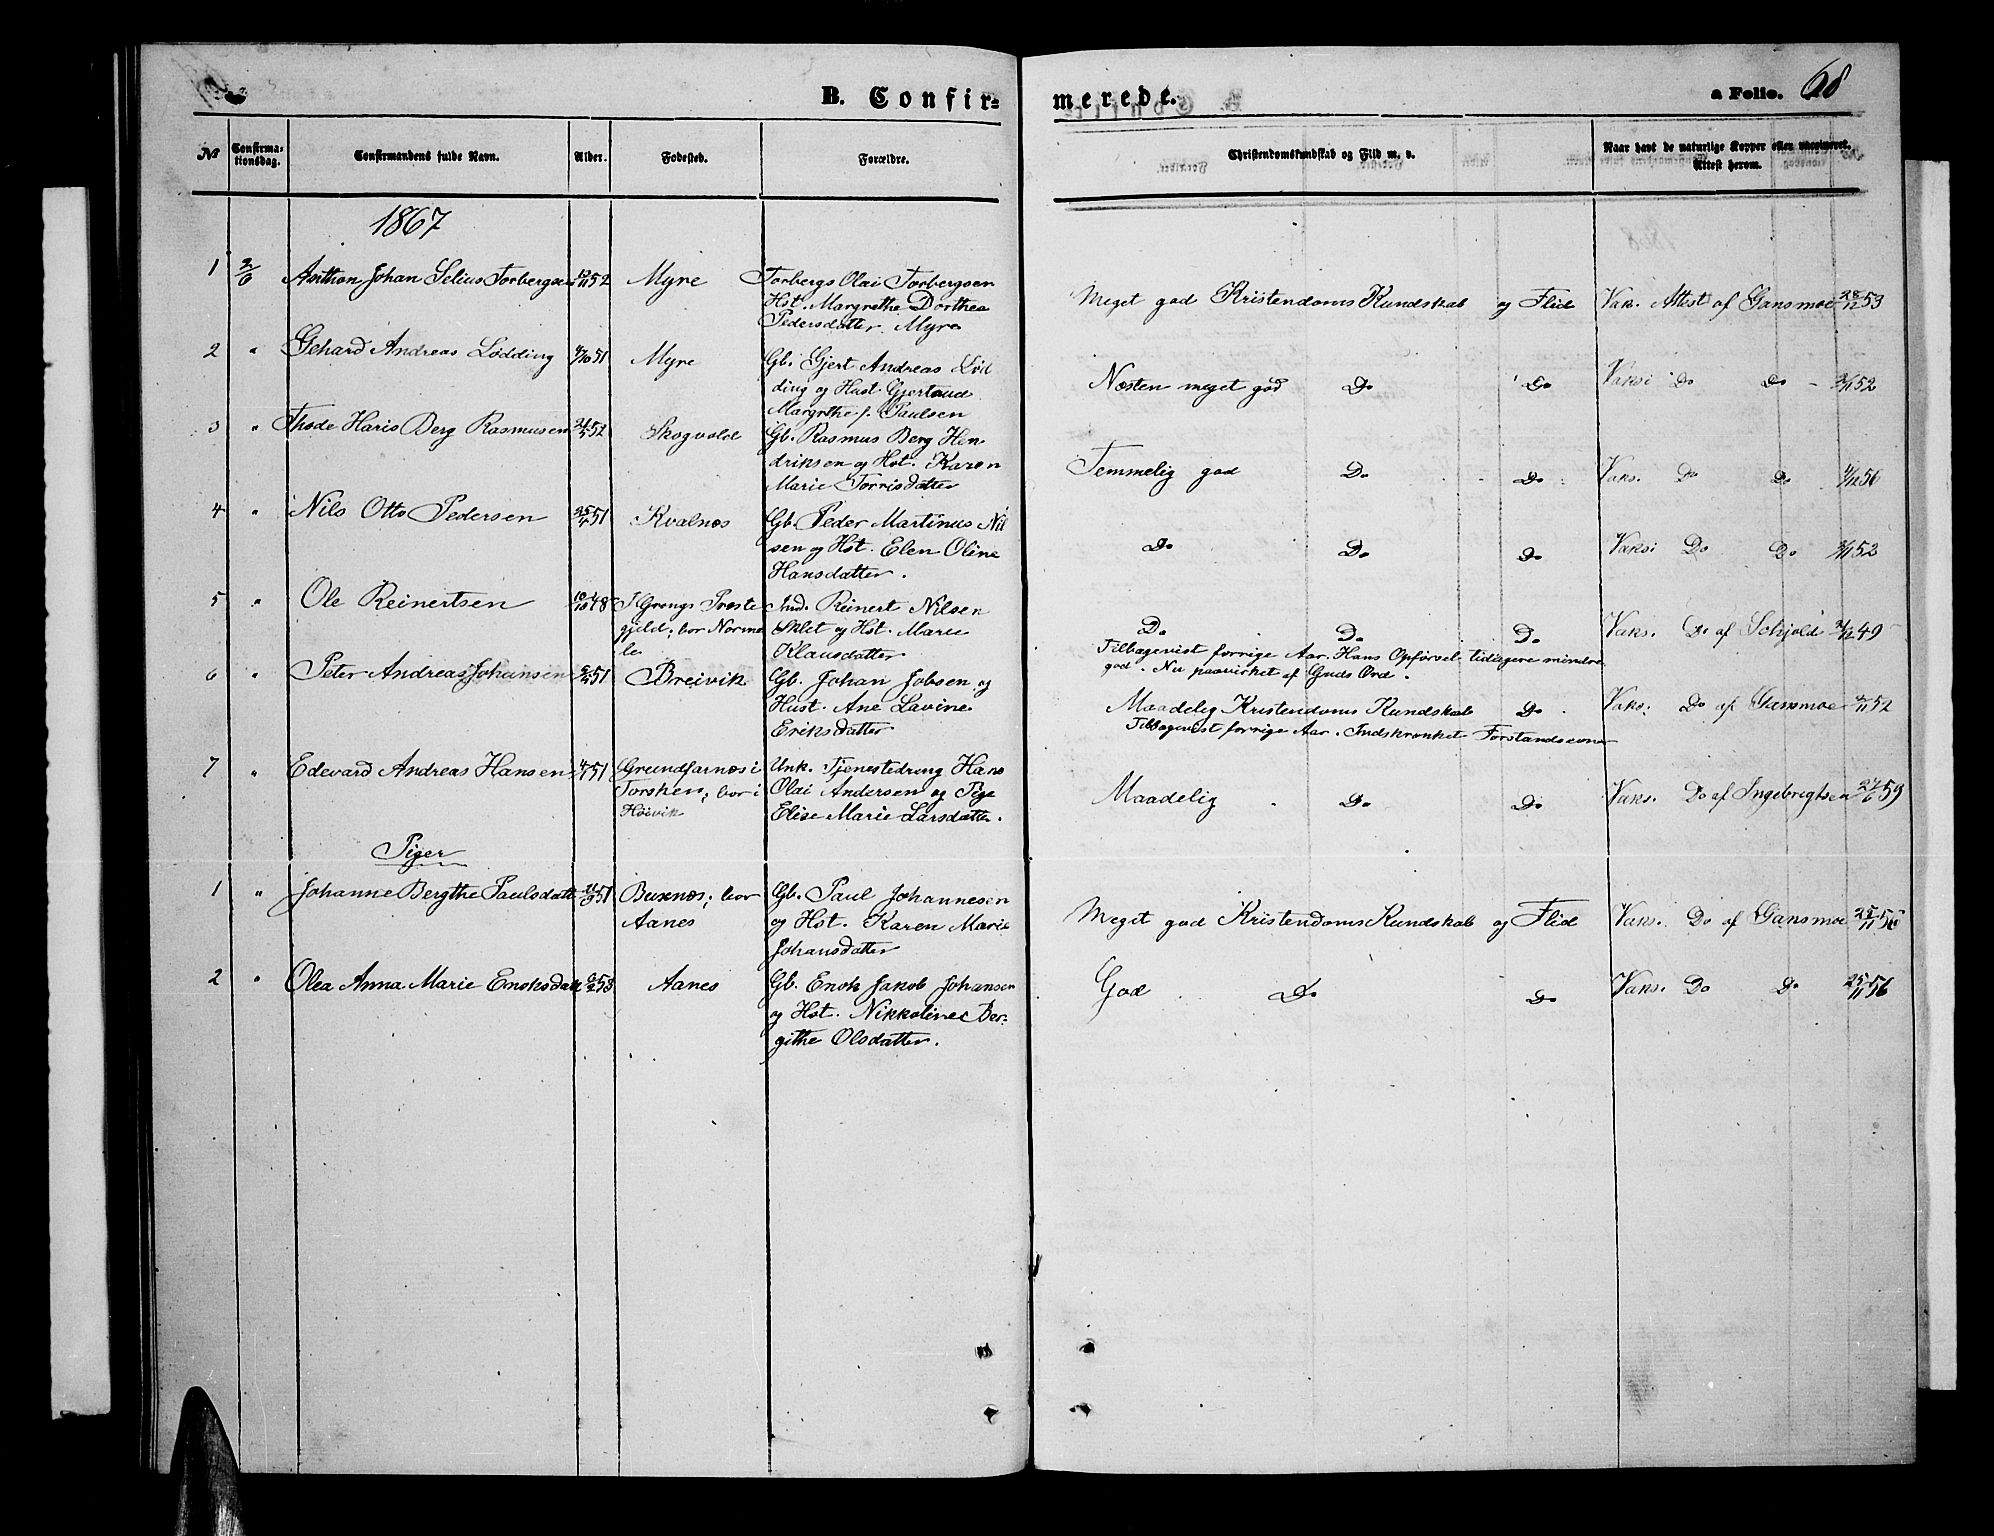 B. Confir=
merede.
a Folio. 68
No
Confirma-
tionsdag.
Confirmandens fulde Navn.
Alder.
Fødested.
Forældre.
Christendomskundskab og Flid m. v.
Naar havt de naturlige Kopper eller vaccineret.
Attest herom.
1867
1 2/6 Anthon Johan Selius Torbergsen 52 Myre Torbergs Olai Torbergsen
Hst. Margrethe Dorthea
Pedersdatter. Myre
Meget god Kristendoms Kundskab og Flid Vak. Attest af Gansmoe 28/12 53
2 " Gehard Andreas Lødding 4/10 51 Myre Gb. Gjert Andreas Lød
ding og Hust. Gjertrud
Margrethe f. Paulsen
Næsten meget god Do Do Vaksi Do Do - 52
3 " Thode Haris Berg Rasmusen 52 Skogvold Gb. Rasmus Berg Hen
driksen og Hst. Karen
Marie Torrisdatter
Temmelig god Do Do Vaks. Do Do 56
4 " Nils Otto Pedersen 51 Kvalnæs Gb. Peder Martinus Nil
sen og Hst. Elen Oline
Hansdatter.
Do Do Do Vaksi Do Do 52
5 " Ole Reinertsen 10/10 48 I Grongs Præste Ind. Reinert Nilsen
gjeld; bor Norme Sklet og Hst. Marie
le Klausdatter
Do Do Do Vaks. Do af Schjold 49
Tilbagevist forrige Aar. Hans Opførsel tidligere mindre
god. Nu paavirket af Guds Ord.
6 " Peter Andreas Johansen 51 Breivik Gb. Johan Jobsen og
Hust. Ane Lavine
Eriksdatter
Maadelig Kristendoms Kundskab Do Vaks. Do af Gansmoe 52
Tilbagevist forrige Aar. Indskrænket Forstandsevner
7 " Edevard Andreas Hansen 51 Grundfarnæs i Unk. Tjenestedreng Hans
Torsken; bor i Olai Andersen og Pige
Høivik Elise Marie Larsdatter.
Maadelig Do Do Vaks. Do af Ingebrigtsen 27/6 59
Piger
1 " Johanne Bergthe Paulsdatt 51 Buxnæs; bor Gb. Paul Johannesen
Aanes og Hst. Karen Marie
Johansdatter
Meget god Kristendoms Kundskab og Flid Vaks. Do af Gansmoe 25/11 56
2 " Olea Anna Marie Enoksdatt 53 Aanes Gb. Enok Jakob Johansen
og Hst. Nikkoline Ber-
githe Olsdatter.
God Do Do Vaks. Do Do 25/11 56